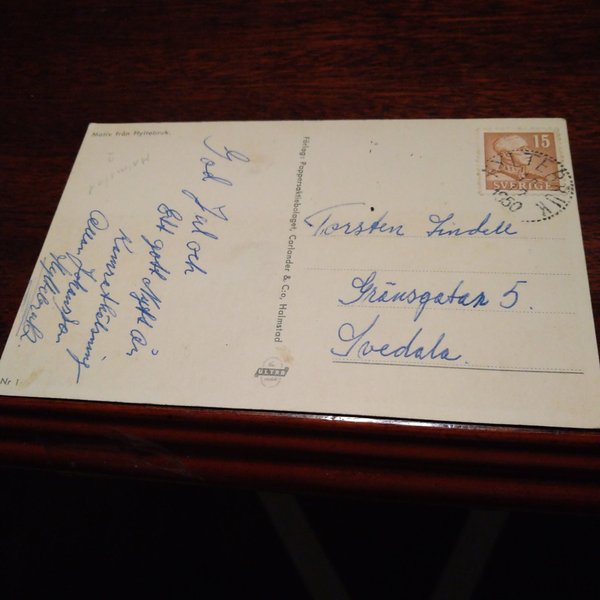 Motiv från Hyltebruk.
Halmstad
God Jul och
Ett gott Nytt år
Vännerhälsning
Johansson
Hyltebruk
Nr 1
Förlag: Pappersaktiebolaget, Carlander & C:o, Halmstad
ULTRA
15
SVERIGE
HYLTEBRUK
1950
Torsten Lindell
Gränsgatan 5.
Svedala.